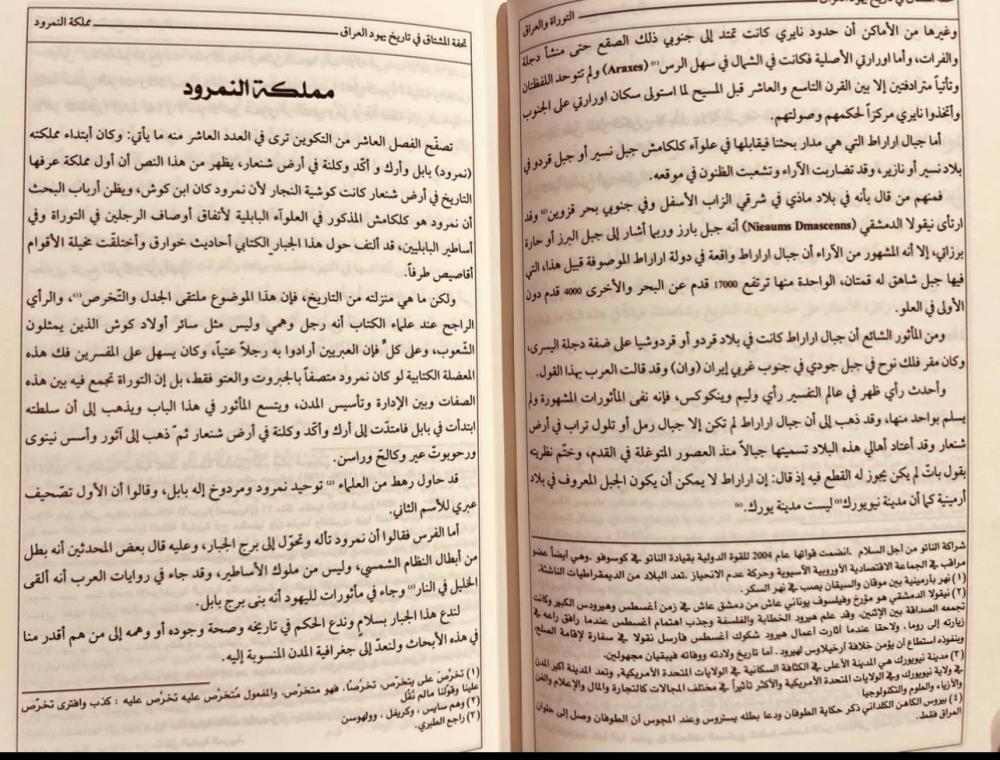 تحفة المشتاق في تاريخ يهود العراق التوراة والعراق
وغيرها من الأماكن أن حدود نايري كانت تمتد إلى جنوبي ذلك الصقع حتى منشأ دجلة
والفرات، وأما اورارتي الأصلية فكانت في الشمال في سهل الرس(١) (Araxes) ولم تتوحد اللفظتان
وتأتيا مترادفتين إلا بين القرن التاسع والعاشر قبل المسيح لما استولى سكان اورارتي على الجنوب
وأتخذوا نايري مركزاً لحكمهم وصولتهم.
أما جبال اراراط التي هي مدار بحثنا فيقابلها في علوآء كلكامش جبل نسير أو جبل قردو في
بلاد نسير أو نازير، وقد تضاربت الآراء وتشعبت الظنون في موقعه.
فمنهم من قال بأنه في بلاد ماذي في شرقي الزاب الأسفل وفي جنوبي بحر قزوين(٢) وقد
ارتأى نيقولا الدمشقي (Nieaums Dmascenns) أنه جبل بارز وربما أشار إلى جبل البرز أو حارة
برزاتي، إلا أنه المشهور من الآراء أن جبال اراراط واقعة في دولة اراراط الموصوفة قبيل هذا، التي
فيها جبل شاهق له قمتان، الواحدة منها ترتفع 17000 قدم عن البحر والأخرى 4000 قدم دون
الأولى في العلو.
ومن المأثور الشائع أن جبال اراراط كانت في بلاد قردو أو قردوشيا على ضفة دجلة اليسرى،
وكان مقر فلك نوح في جبل جودي في جنوب غربي إيران (وان) وقد قالت العرب بهذا القول.
وأحدث رأي ظهر في عالم التفسير رأي وليم وينكوكس، فإنه نفى المأثورات المشهورة ولم
يسلم بواحد منها، وقد ذهب إلى أن جبال اراراط لم تكن إلا جبال رمل أو تلول تراب في أرض
شنعار وقد أعتاد أهالي هذه البلاد تسميتها جبالاً منذ العصور المتوغلة في القدم، وختّم نظريته
بقول باتّ لم يكن يجوز له القطع فيه إذ قال: إن اراراط لا يمكن أن يكون الجبل المعروف في بلاد
أرمينية كما أن مدينة نيويورك(٣) ليست مدينة يورك.(٤)
شراكة الناتو من أجل السلام .انضمت قواتها عام 2004 للقوة الدولية بقيادة الناتو في كوسوفو .وهي أيضاً عضو
مراقب في الجماعة الاقتصادية الأوروبية الآسيوية وحركة عدم الانحياز .تعد البلاد من الديمقراطيات الناشئة.
(١) نهر بأرمينية بين موقان والسيقان يصب في نهر السكر.
(٢) نيقولا الدمشقي هو مؤرخ وفيلسوف يوناني عاش من دمشق عاش في زمن أغسطس وهيرودس الكبير وكانت
تجمعه الصداقة بين الإثنين، وقد علم هيرود الخطابة والفلسفة وجذب اهتمام اغسطس عندما رافق راعه في
زيارته إلى روما. ولاحقا عندما أثارت أعمال هيرود شكوك اغسطس فارسل نقولا في سفارة لإقامة الصلح،
وبنفوذه استطاع أن يؤمن خلافة أرخيلاوس لهيرود. أما تاريخ ولادته ووفاته فيبقيان مجهولين.
(٣) مدينة نيويورك هي المدينة الأعلى في الكثافة السكانية في الولايات المتحدة الأمريكية, وتعد المدينة أكبر المدن
في ولاية نيويورك وفي الولايات المتحدة الأمريكية والأكثر تأثيراً في مختلف المجالات كالتجارة والمال والإعلام والفن
والأزياء والعلوم والتكنولوجيا
(٤) بيروس الكاهن الكلداني ذكر حكاية الطوفان ودعا بطله يستروس وعند المجوس أن الطوفان وصل إلى حلوان
العراق فقط.
تحفة المشتاق في تاريخ يهود العراق مملكة النمرود
مملكة النمرود
تصفّح الفصل العاشر من التكوين ترى في العدد العاشر منه ما يأتي: وكان أبتداء مملكته
(نمرود) بابل وأرك و أكّد وكلنة في أرض شنعار، يظهر من هذا النص أن أول مملكة عرفها
التاريخ في أرض شنعار كانت كوشية النجار لأن نمرود كان ابن كوش، ويظن أرباب البحث
أن نمرود هو كلكامش المذكور في العلوآء البابلية لأتفاق أوصاف الرجلين في التوراة وفي
أساطير البابليين، قد ألتف حول هذا الجبار الكتابي أحاديث خوارق وأختلقّت مخيلة الأقوام
أقاصيص طرفاً.
ولكن ما هي منزلته من التاريخ، فإن هذا الموضوع ملتقى الجدل والتّخرص(١)، والرأي
الراجح عند علماء الكتاب أنه رجل وهمي وليس مثل سائر أولاد كوش الذين يمثلون
الشّعوب، وعلى كلّ فإن العبريين أرادوا به رجلاً عتياً، وكان يسهل على المفسرين فك هذه
المعضلة الكتابية لو كان نمرود متصفاً بالجبروت والعتو فقط، بل إن التوراة تجمع فيه بين هذه
الصفات وبين الإدارة وتأسيس المدن، ويتسع المأثور في هذا الباب ويذهب إلى أن سلطته
ابتدأت في بابل فامتدّت إلى أرك وأكّد وكلنة في أرض شنعار ثمّ ذهب إلى آثور وأسس نينوى
ورحوبوتّ عير وكالحّ وراسن.
قد حاول رهط من العلماء (٢) توحيد نمرود ومردوخ إله بابل، وقالوا أن الأول تصّحيف
عبري للأسم الثاني.
أما الفرس فقالوا أن نمرود تأله وتحوّل إلى برج الجبار، وعليه قال بعض المحدثين أنه بطل
من أبطال النظام الشمسي، وليس من ملوك الأساطير، وقد جاء في روايات العرب أنه ألقى
الخليل في النار(٣) وجاء في مأثورات لليهود أنه بنى برج بابل.
لندع هذا الجبار بسلامٍ وندع الحكم في تاريخه وصحة وجوده أو وهمه إلى من هم أقدر منا
في هذه الأبحاث ولنعدّ إلى جغرافية المدن المنسوبة إليه.
(١) تخرّصَ على يتخرّص, تخرُّصًا, فهو متخرّص, والمفعول مُتخرَّص عليه تخرَّص عليه : كذب وافترى تخرّص
علينا وقوّلنا مالم نُقُل
(٢) وهم سايس ، وكريفل ، وولهوسن
(٣) راجع الطبري.